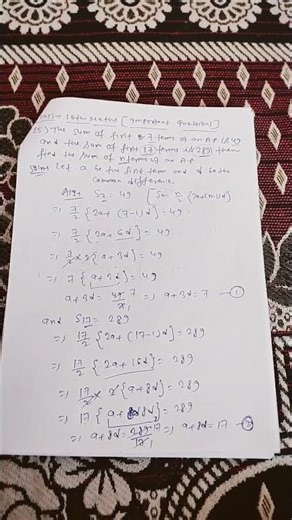 10th maths [Important Question]
15.) The sum of first 7 terms of an A.P is 49
and the sum of first 17 terms is 289 then
find the sum of n terms of an A.P
Soln: Let a be the first term and d be the
common difference.
A.T.Q. S7 = 49 [Sn = n/2 {2a+(n-1)d}
=> 7/2 {2a + (7-1)d} = 49
=> 7/2 {2a + 6d} = 49
=> 7/2 x 2 {a+3d} = 49
=> 7 {a+3d} = 49
a+3d = 49/7 7 => a+3d = 7 — ①
and S17 = 289
=> 17/2 {2a + (17-1)d} = 289
=> 17/2 {2a + 16d} = 289
=> 17/2 x 2 {a+8d} = 289
=> 17 {a + 8d} = 289
=> a+8d = 289/17 17 => a+8d = 17 — ②